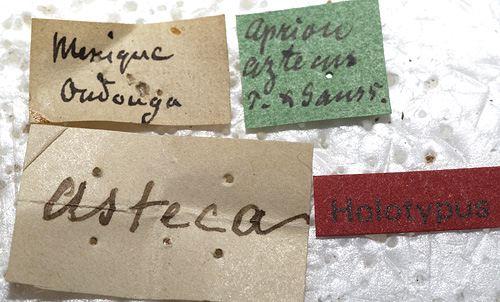 Mexique
Oudonga
Aprion
aztecus
T. & Sauss.
asteca
Holotypus